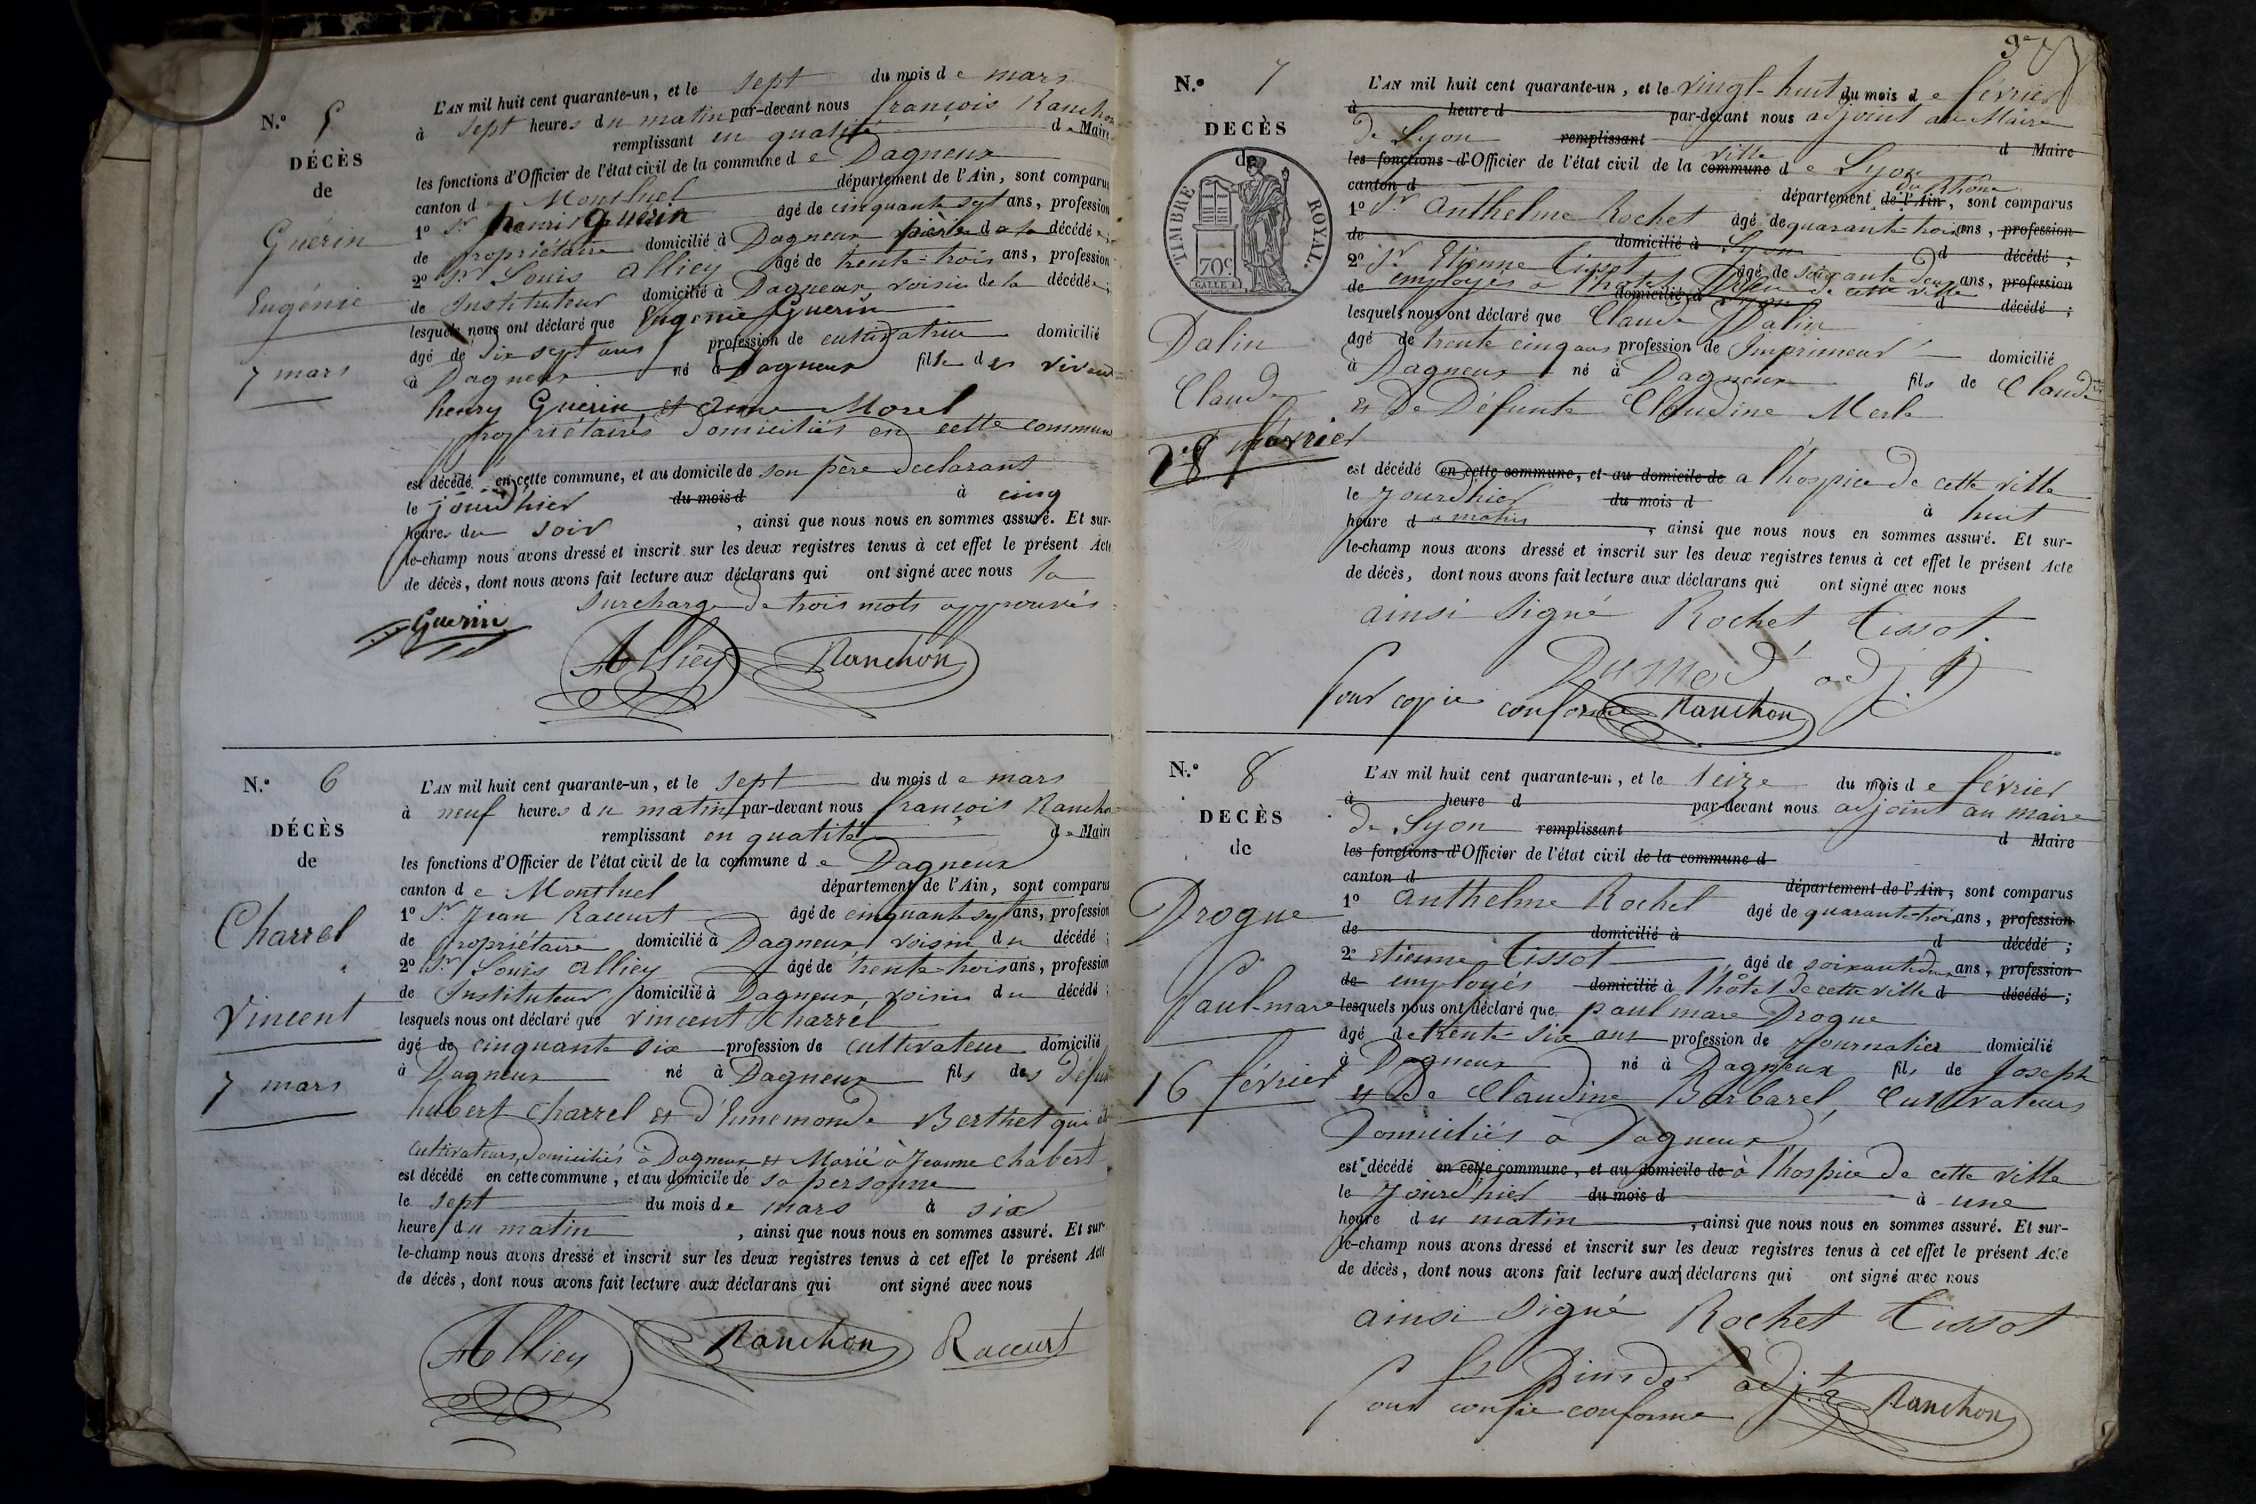 N.º 5
DÉCÈS
de
Guérin
Eugénie
7 mars
L'AN mil huit cent quarante-un, et le sept du mois de mars
à sept heures du matin par-devant nous françois Ranchon
remplissant en qualité de Maire
les fonctions d'Officier de l'état civil de la commune de Dagneux
canton de Montluel département de l'Ain, sont comparus
1º Sr henri Guerin âgé de cinquante sept ans, profession
de propriétaire domicilié à Dagneux père de la décédée ;
2º Sr Louis Alliey âgé de trente-trois ans, profession
de Instituteur domicilié à Dagneux voisin de la décédée ;
lesquels nous ont déclaré que Eugenie Guerin
âgé de dix sept ans profession de cultivatrice domicilié
à Dagneux né à Dagneux fille des vivants
henry Guerin et anne Morel
propriétaires domiciliés en cette commune
est décédé en cette commune, et au domicile de son père declarant
le jourdhier du mois d à cinq
heures du soir, ainsi que nous nous en sommes assuré. Et sur-
le-champ nous avons dressé et inscrit sur les deux registres tenus à cet effet le présent Acte
de décès, dont nous avons fait lecture aux déclarans qui ont signé avec nous la
surcharge de trois mots approuvés
Guerin
Alliey Ranchon
N.º 6
DÉCÈS
de
Charrel
Vincent
7 mars
L'AN mil huit cent quarante-un, et le sept du mois de mars
à neuf heures du matin par-devant nous françois Ranchon
remplissant en qualité de Maire
les fonctions d'Officier de l'état civil de la commune de Dagneux
canton de Montluel département de l'Ain, sont comparus
1º Sr Jean Raccurt âgé de cinquante sept ans, profession
de propriétaire domicilié à Dagneux voisin du décédé ;
2º Sr Louis Alliey âgé de trente-trois ans, profession
de Instituteur domicilié à Dagneux, voisin du décédé ;
lesquels nous ont déclaré que vincent Charrel
âgé de cinquante six profession de cultivateur domicilié
à Dagneux né à Dagneux fils des défunts
hubert Charrel et d'Ennemonde Berthet qui
cultivateurs, domiciliés à Dagneux et Marié à Jeanne Chabert
est décédé en cette commune, et au domicile de sa personne
le sept du mois de mars à six
heure du matin, ainsi que nous nous en sommes assuré. Et sur-
le-champ nous avons dressé et inscrit sur les deux registres tenus à cet effet le présent Acte
de décès, dont nous avons fait lecture aux déclarans qui ont signé avec nous
Alliey Ranchon Raccurt
N.º 7
DECÈS
de
TIMBRE ROYAL.
70c
Dalin
Claude
28 février
L'AN mil huit cent quarante-un, et le vingt-huit du mois de février
à heure d par-devant nous adjoint au Maire
de Lyon remplissant d Maire
les fonctions d'Officier de l'état civil de la commune ville de Lyon
canton d département de l'Ain du Rhône, sont comparus
1º Sr Anthelme Rochet âgé de quarante-trois ans, profession
de domicilié à Lyon d décédé ;
2º Sr Etienne Tissot âgé de soixante deux ans, profession
de employés à l'hotel Dieu de cette ville domicilié à d décédé ;
lesquels nous ont déclaré que Claude Dalin
âgé de trente cinq ans profession de Imprimeur domicilié
à Dagneux né à Dagneux fils de Claude
et De Défunte Claudine Merle
est décédé en cette commune, et au domicile de a l'hospice de cette ville
le Jourdhier du mois d à huit
heure du matin, ainsi que nous nous en sommes assuré. Et sur-
le-champ nous avons dressé et inscrit sur les deux registres tenus à cet effet le présent Acte
de décès, dont nous avons fait lecture aux déclarans qui ont signé avec nous
ainsi signé Rochet Tissot
adj.
Pour copie conforme Ranchon
N.º 8
DECÈS
de
Drogue
Paul-marc
16 février
L'AN mil huit cent quarante-un, et le seize du mois de février
à heure d par-devant nous adjoint au maire
de Lyon remplissant d Maire
les fonctions d'Officier de l'état civil de la commune d
canton d département de l'Ain, sont comparus
1º Anthelme Rochet âgé de quarante-trois ans, profession
de domicilié à d décédé ;
2º etienne Tissot, âgé de soixante deux ans, profession
de employés domicilié à l'hôtel de cette ville d décédé ;
lesquels nous ont déclaré que paul marc Drogue
âgé de trente-six ans profession de Journalier domicilié
à Dagneux né à Dagneux fils de Joseph
et De Claudine Barbarel, Cultivateurs
Domiciliés à Dagneux
est décédé en cette commune, et au domicile de à l'hospice de cette ville
le Jourdhier du mois d à une
heure du matin, ainsi que nous nous en sommes assuré. Et sur-
le-champ nous avons dressé et inscrit sur les deux registres tenus à cet effet le présent Acte
de décès, dont nous avons fait lecture aux déclarans qui ont signé avec nous
ainsi signé Rochet Tissot
adj.t
Pour copie conforme Ranchon